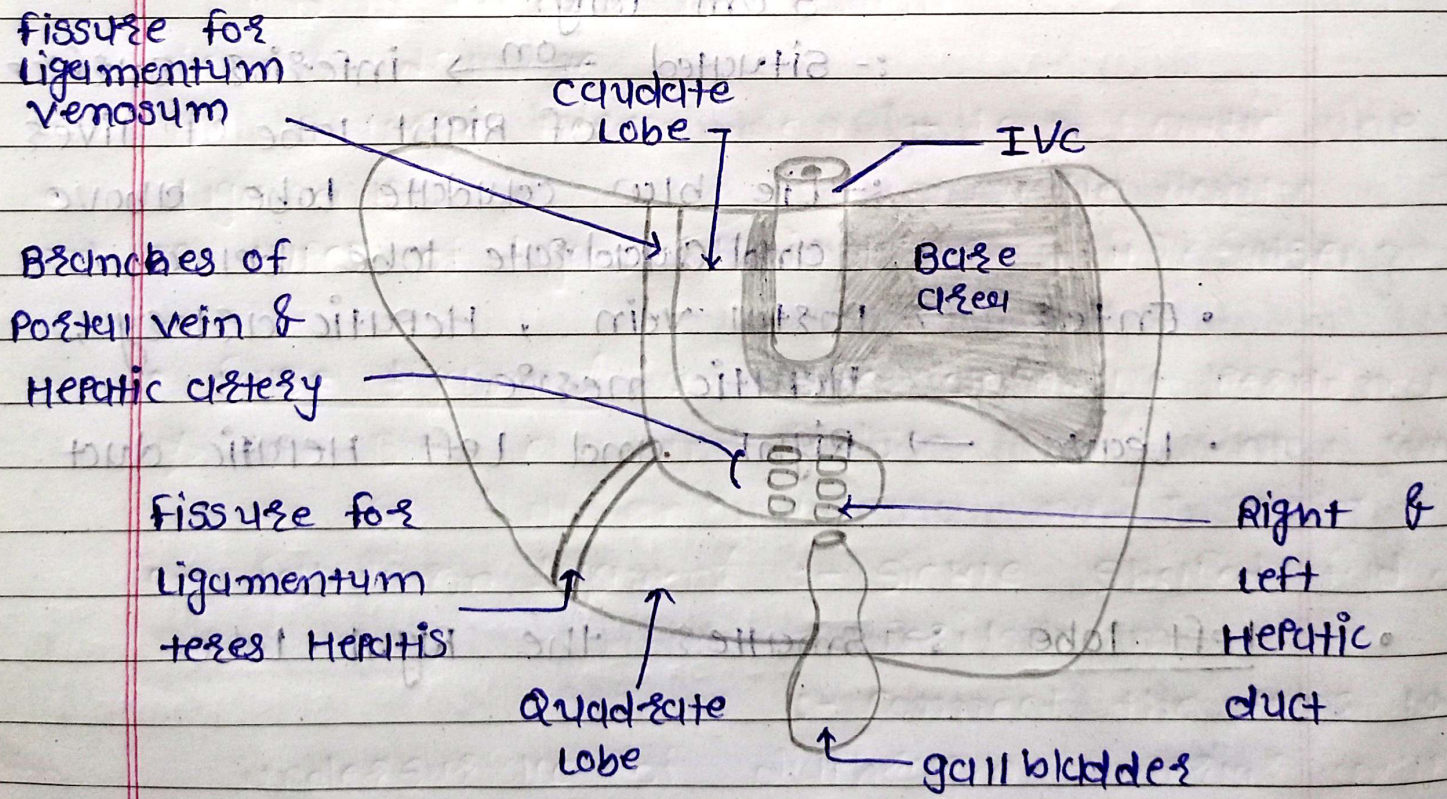 Fissure for
Ligamentum
Venosum
Caudate
Lobe
IVC
Branches of
Portal vein &
Hepatic artery
Bare
area
Fissure for
Ligamentum
teres Hepatis
Quadrate
Lobe
Right &
Left
Hepatic
duct
gall bladder